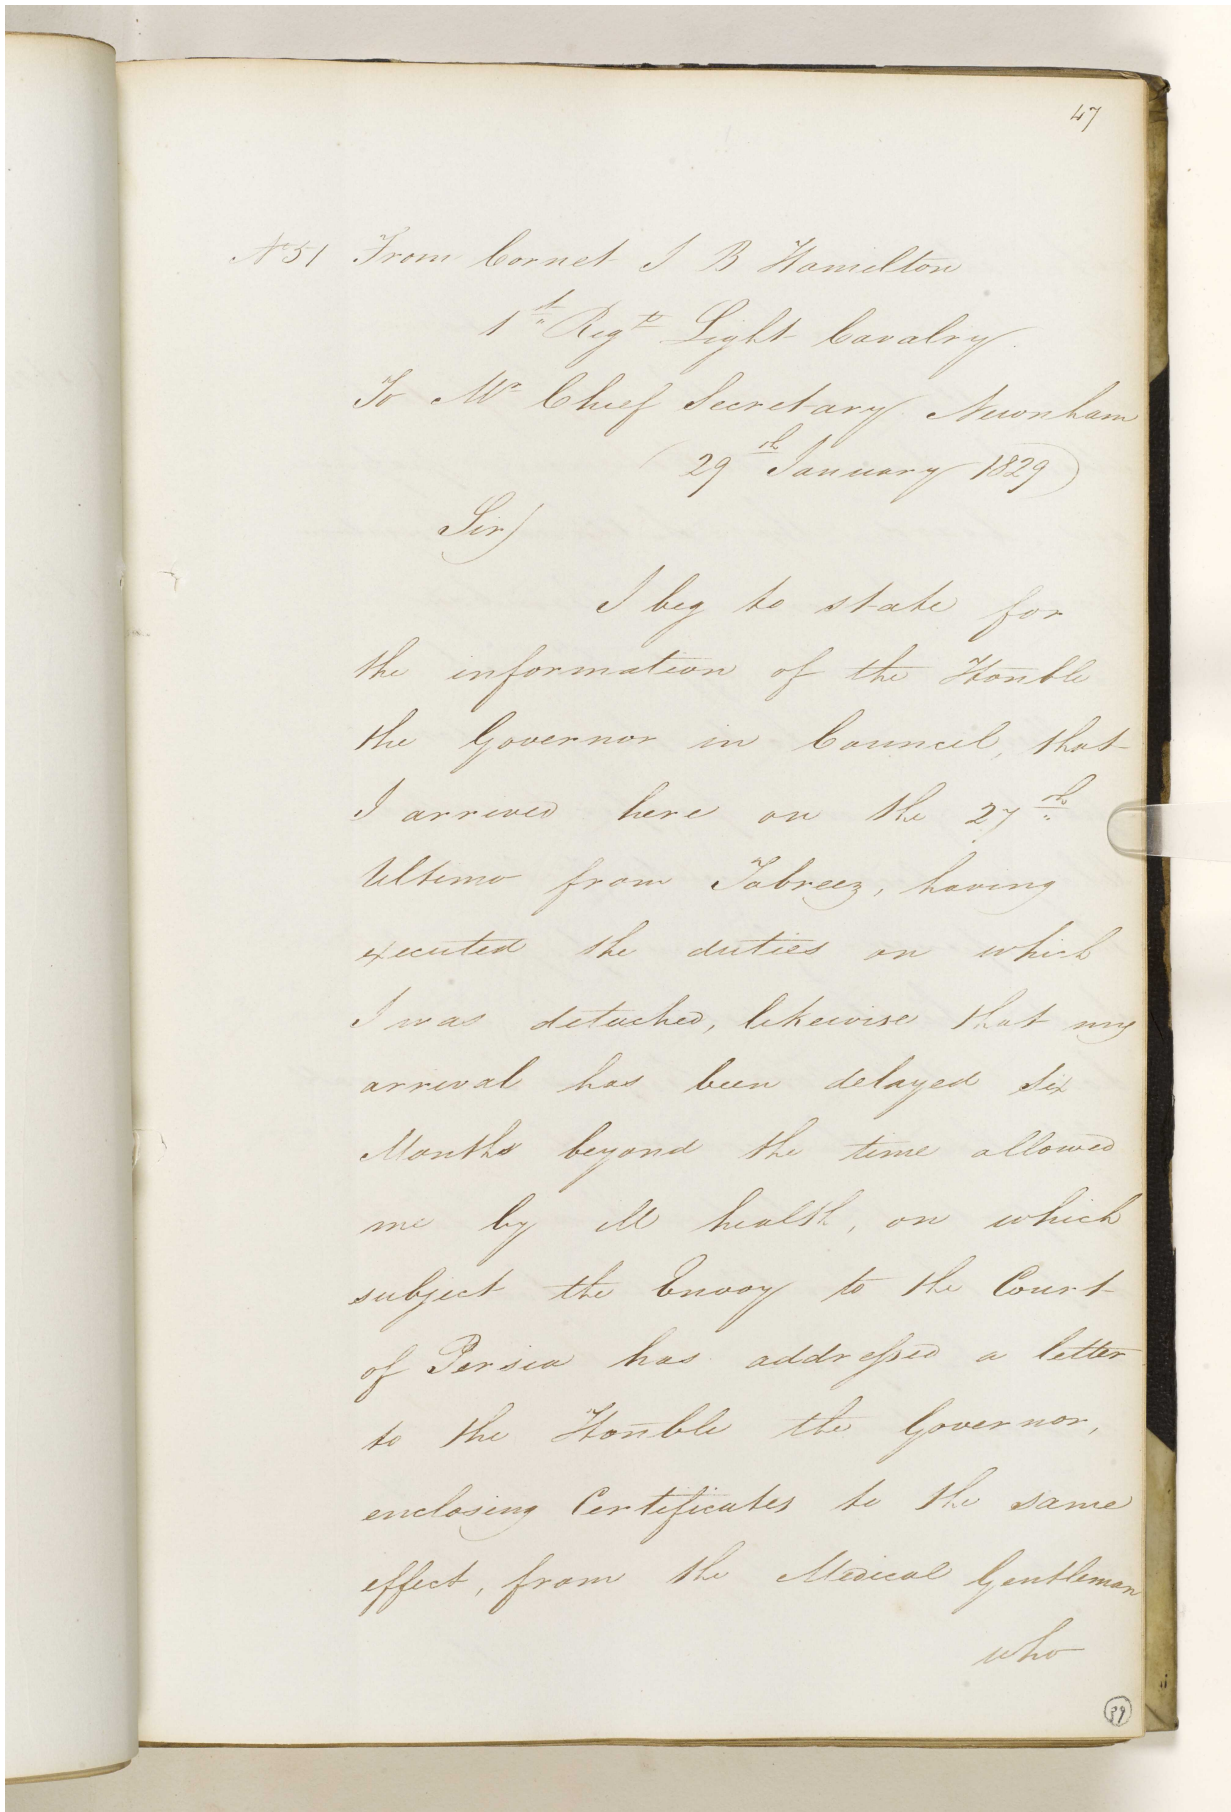 47
No 51 From Cornet J B Hamilton
1st Regt Light Cavalry.
To Mr Chief Secretary Newnham
(29th January 1829)
Sir,
I beg to state for
the information of the Honble
the Governor in Council, that
I arrived here on the 27th
Ultimo from Tabreez, having
executed the duties on which
I was detached, likewise that my
arrival has been delayed Six
Months beyond the time allowed
me by ill health, on which
subject the Envoy to the Court
of Persia has addressed a letter
to the Honble the Governor,
enclosing Certificates to the same
effect, from the Medical Gentleman
who
39